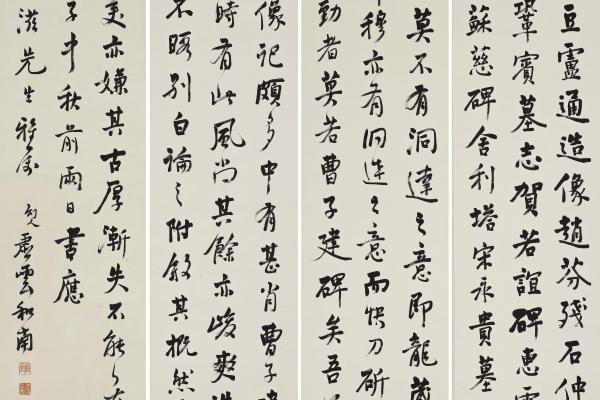 亘靈通造像趙芬殘石仲
鞏賓墓志賀若誼碑惠雲
蘇慈碑舍利塔宋永貴墓
莫不有洞達之意即龍藏
穆亦有旧迹之意而快刀斫
勁者莫若曹子建碑矣吾
像記頗多中有甚肖曹子建
時有此風尚其餘亦峻爽
不暇别白論之附敘其概然
美亦嫌其古厚漸失不能
子中秋前兩日書應
滋先生雅屬
虛雲和南